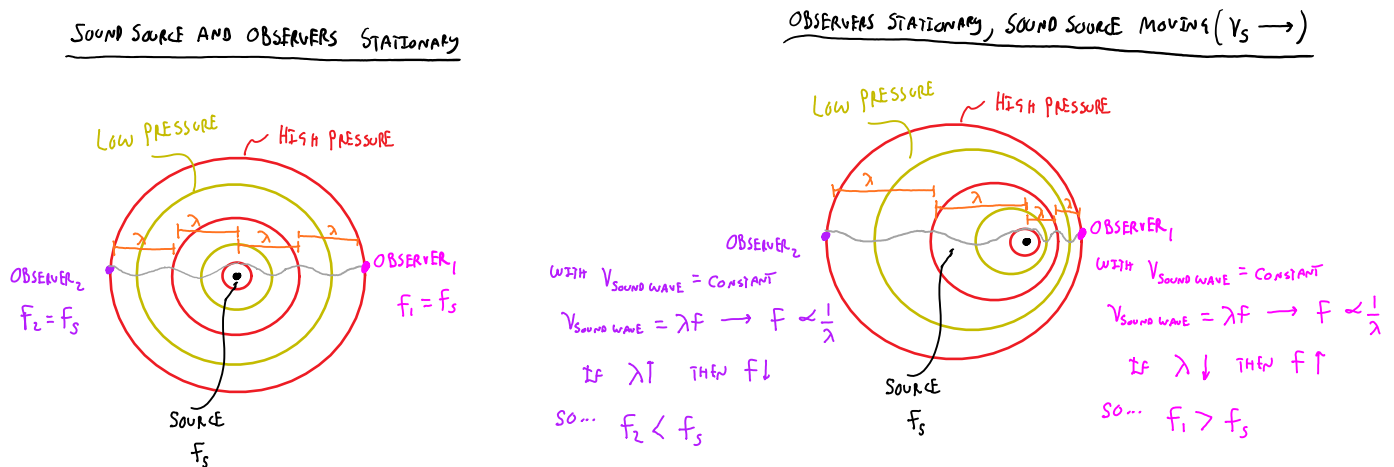 SOUND SOURCE AND OBSERVERS STATIONARY
LOW PRESSURE
HIGH PRESSURE
λ
λ
λ
λ
OBSERVER₂
f₂ = fₛ
OBSERVER₁
f₁ = fₛ
SOURCE
fₛ
OBSERVERS STATIONARY, SOUND SOURCE MOVING (Vₛ →)
LOW PRESSURE
HIGH PRESSURE
λ
λ
λ
λ
OBSERVER₂
WITH V_SOUND WAVE = CONSTANT
V_SOUND WAVE = λf → f ∝ 1/λ
IF λ↑ THEN f↓
SO... f₂ < fₛ
SOURCE
fₛ
OBSERVER₁
WITH V_SOUND WAVE = CONSTANT
V_SOUND WAVE = λf → f ∝ 1/λ
IF λ↓ THEN f↑
SO... f₁ > fₛ